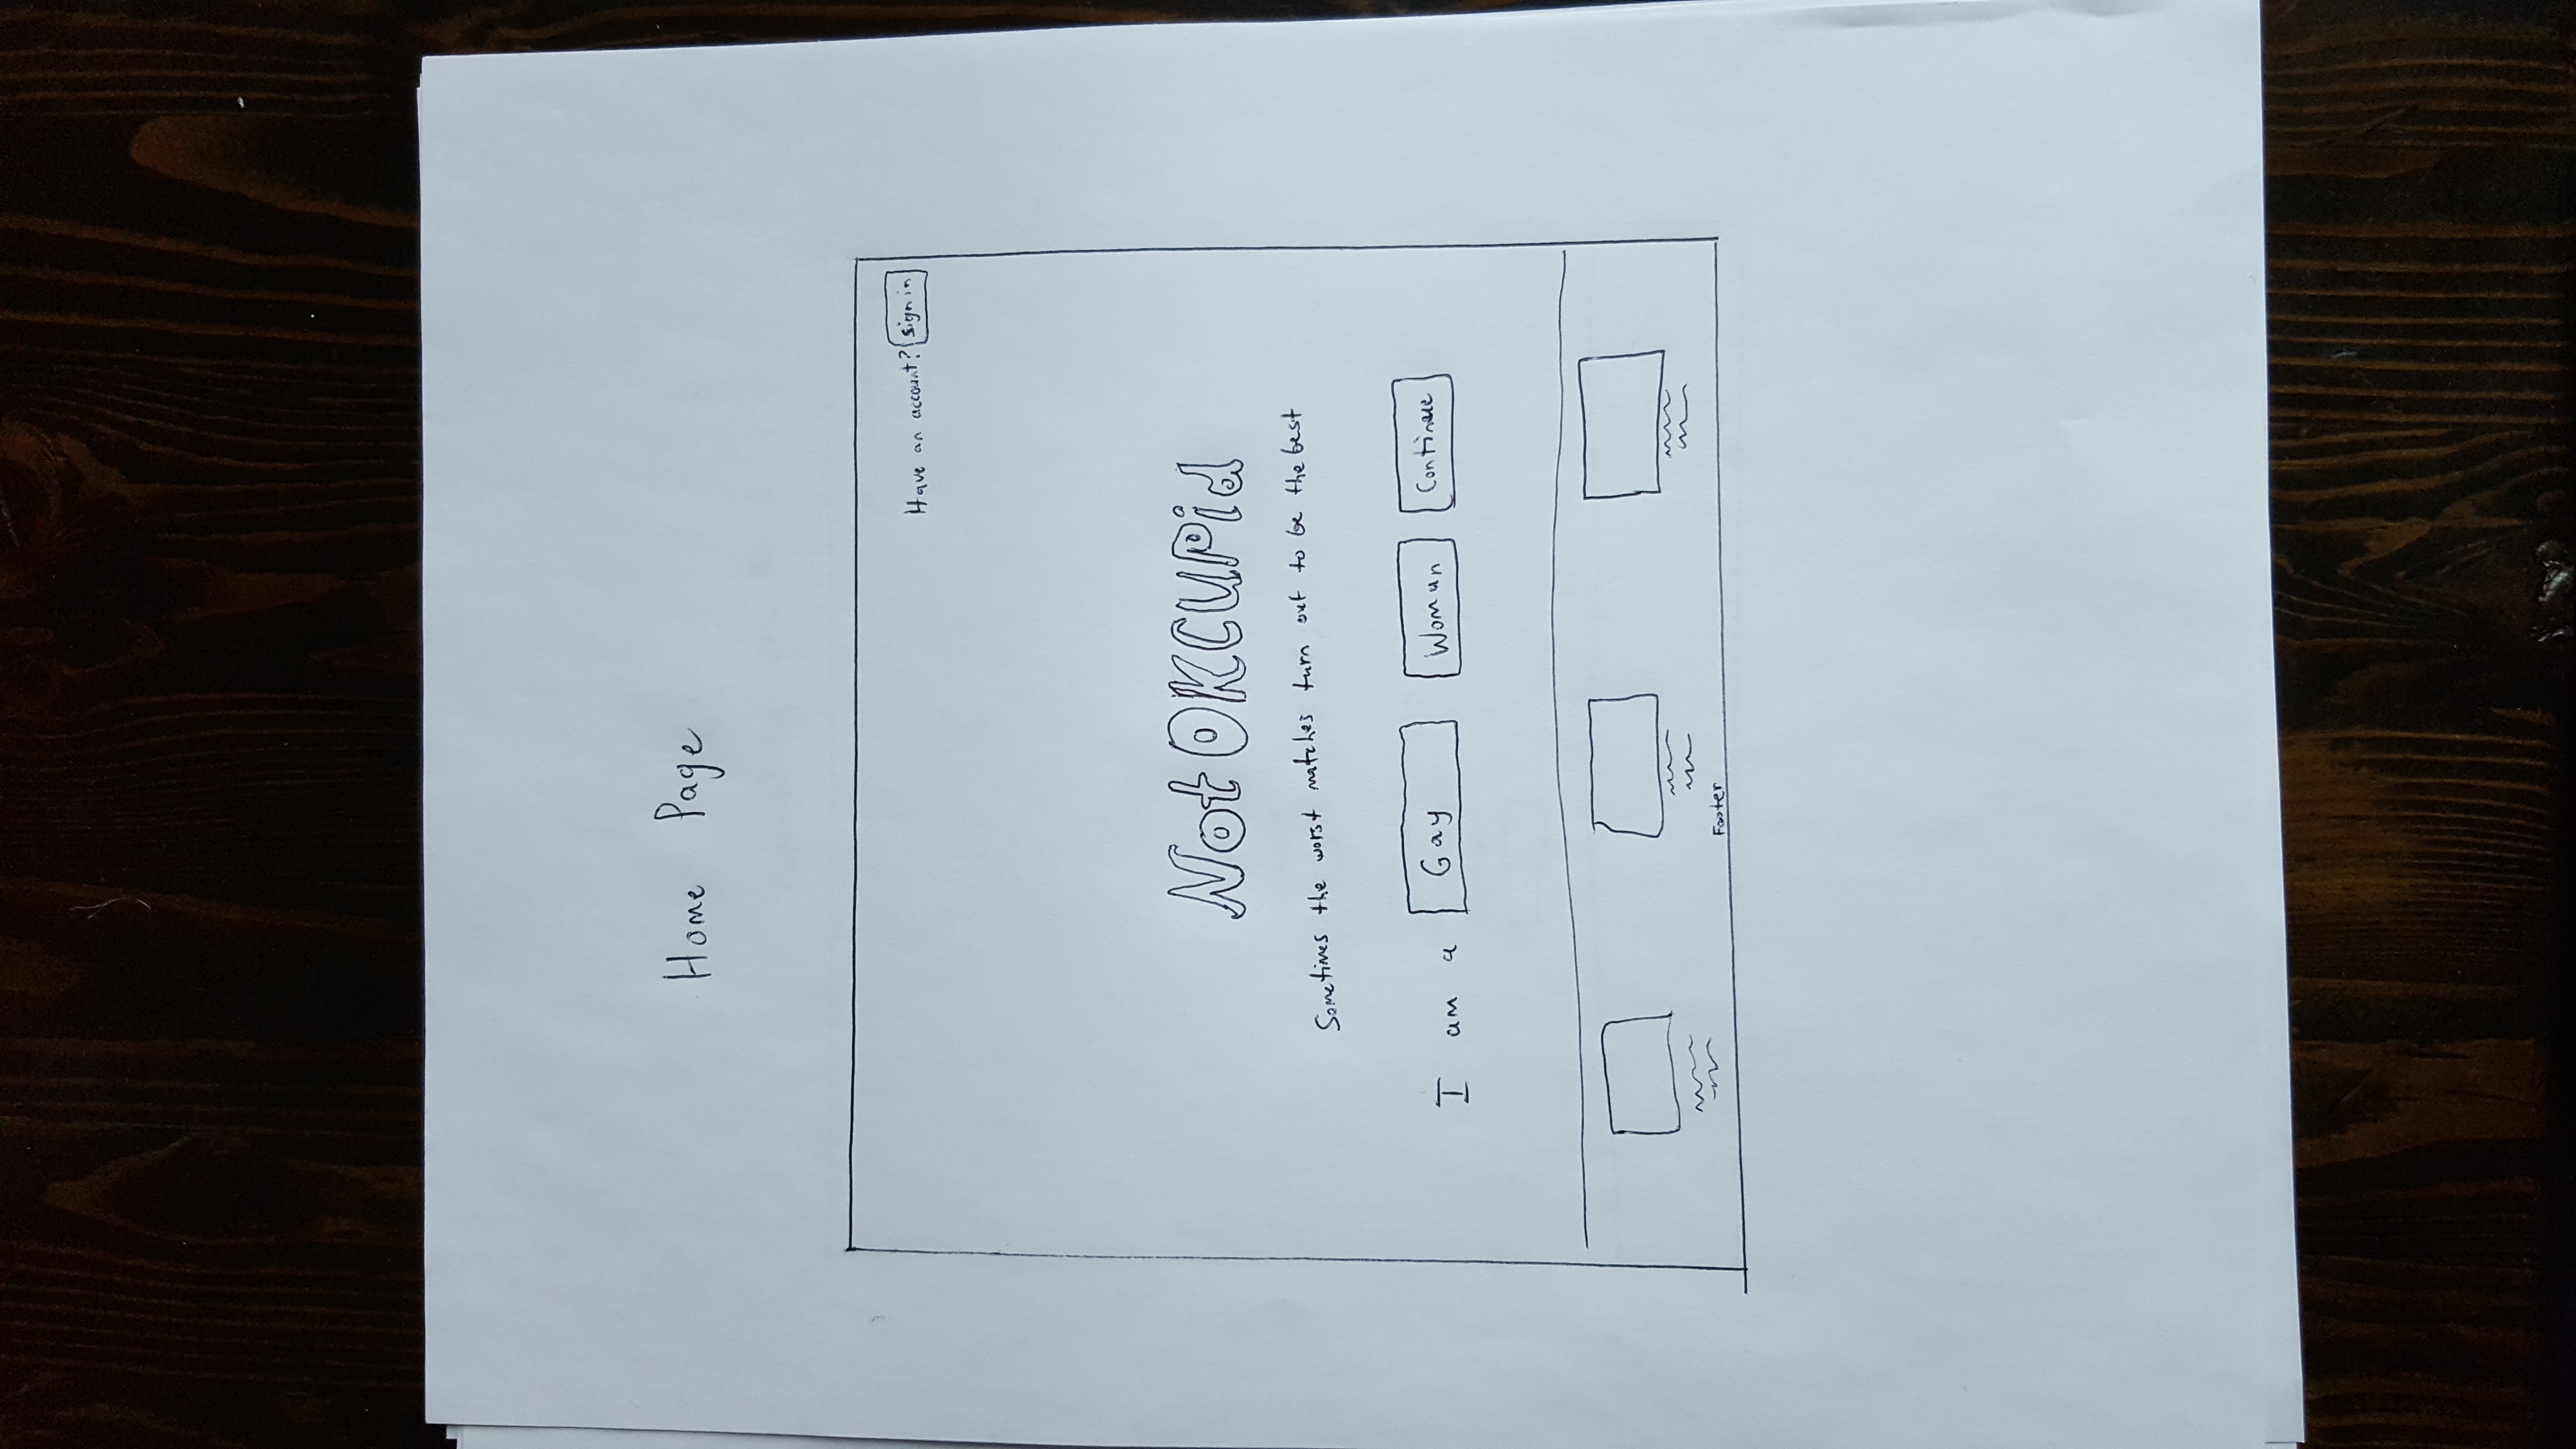 Home Page
Have an account? Sign in
Not OKCUPid
Sometimes the worst matches turn out to be the best
I am a Gay Woman Continue
Footer